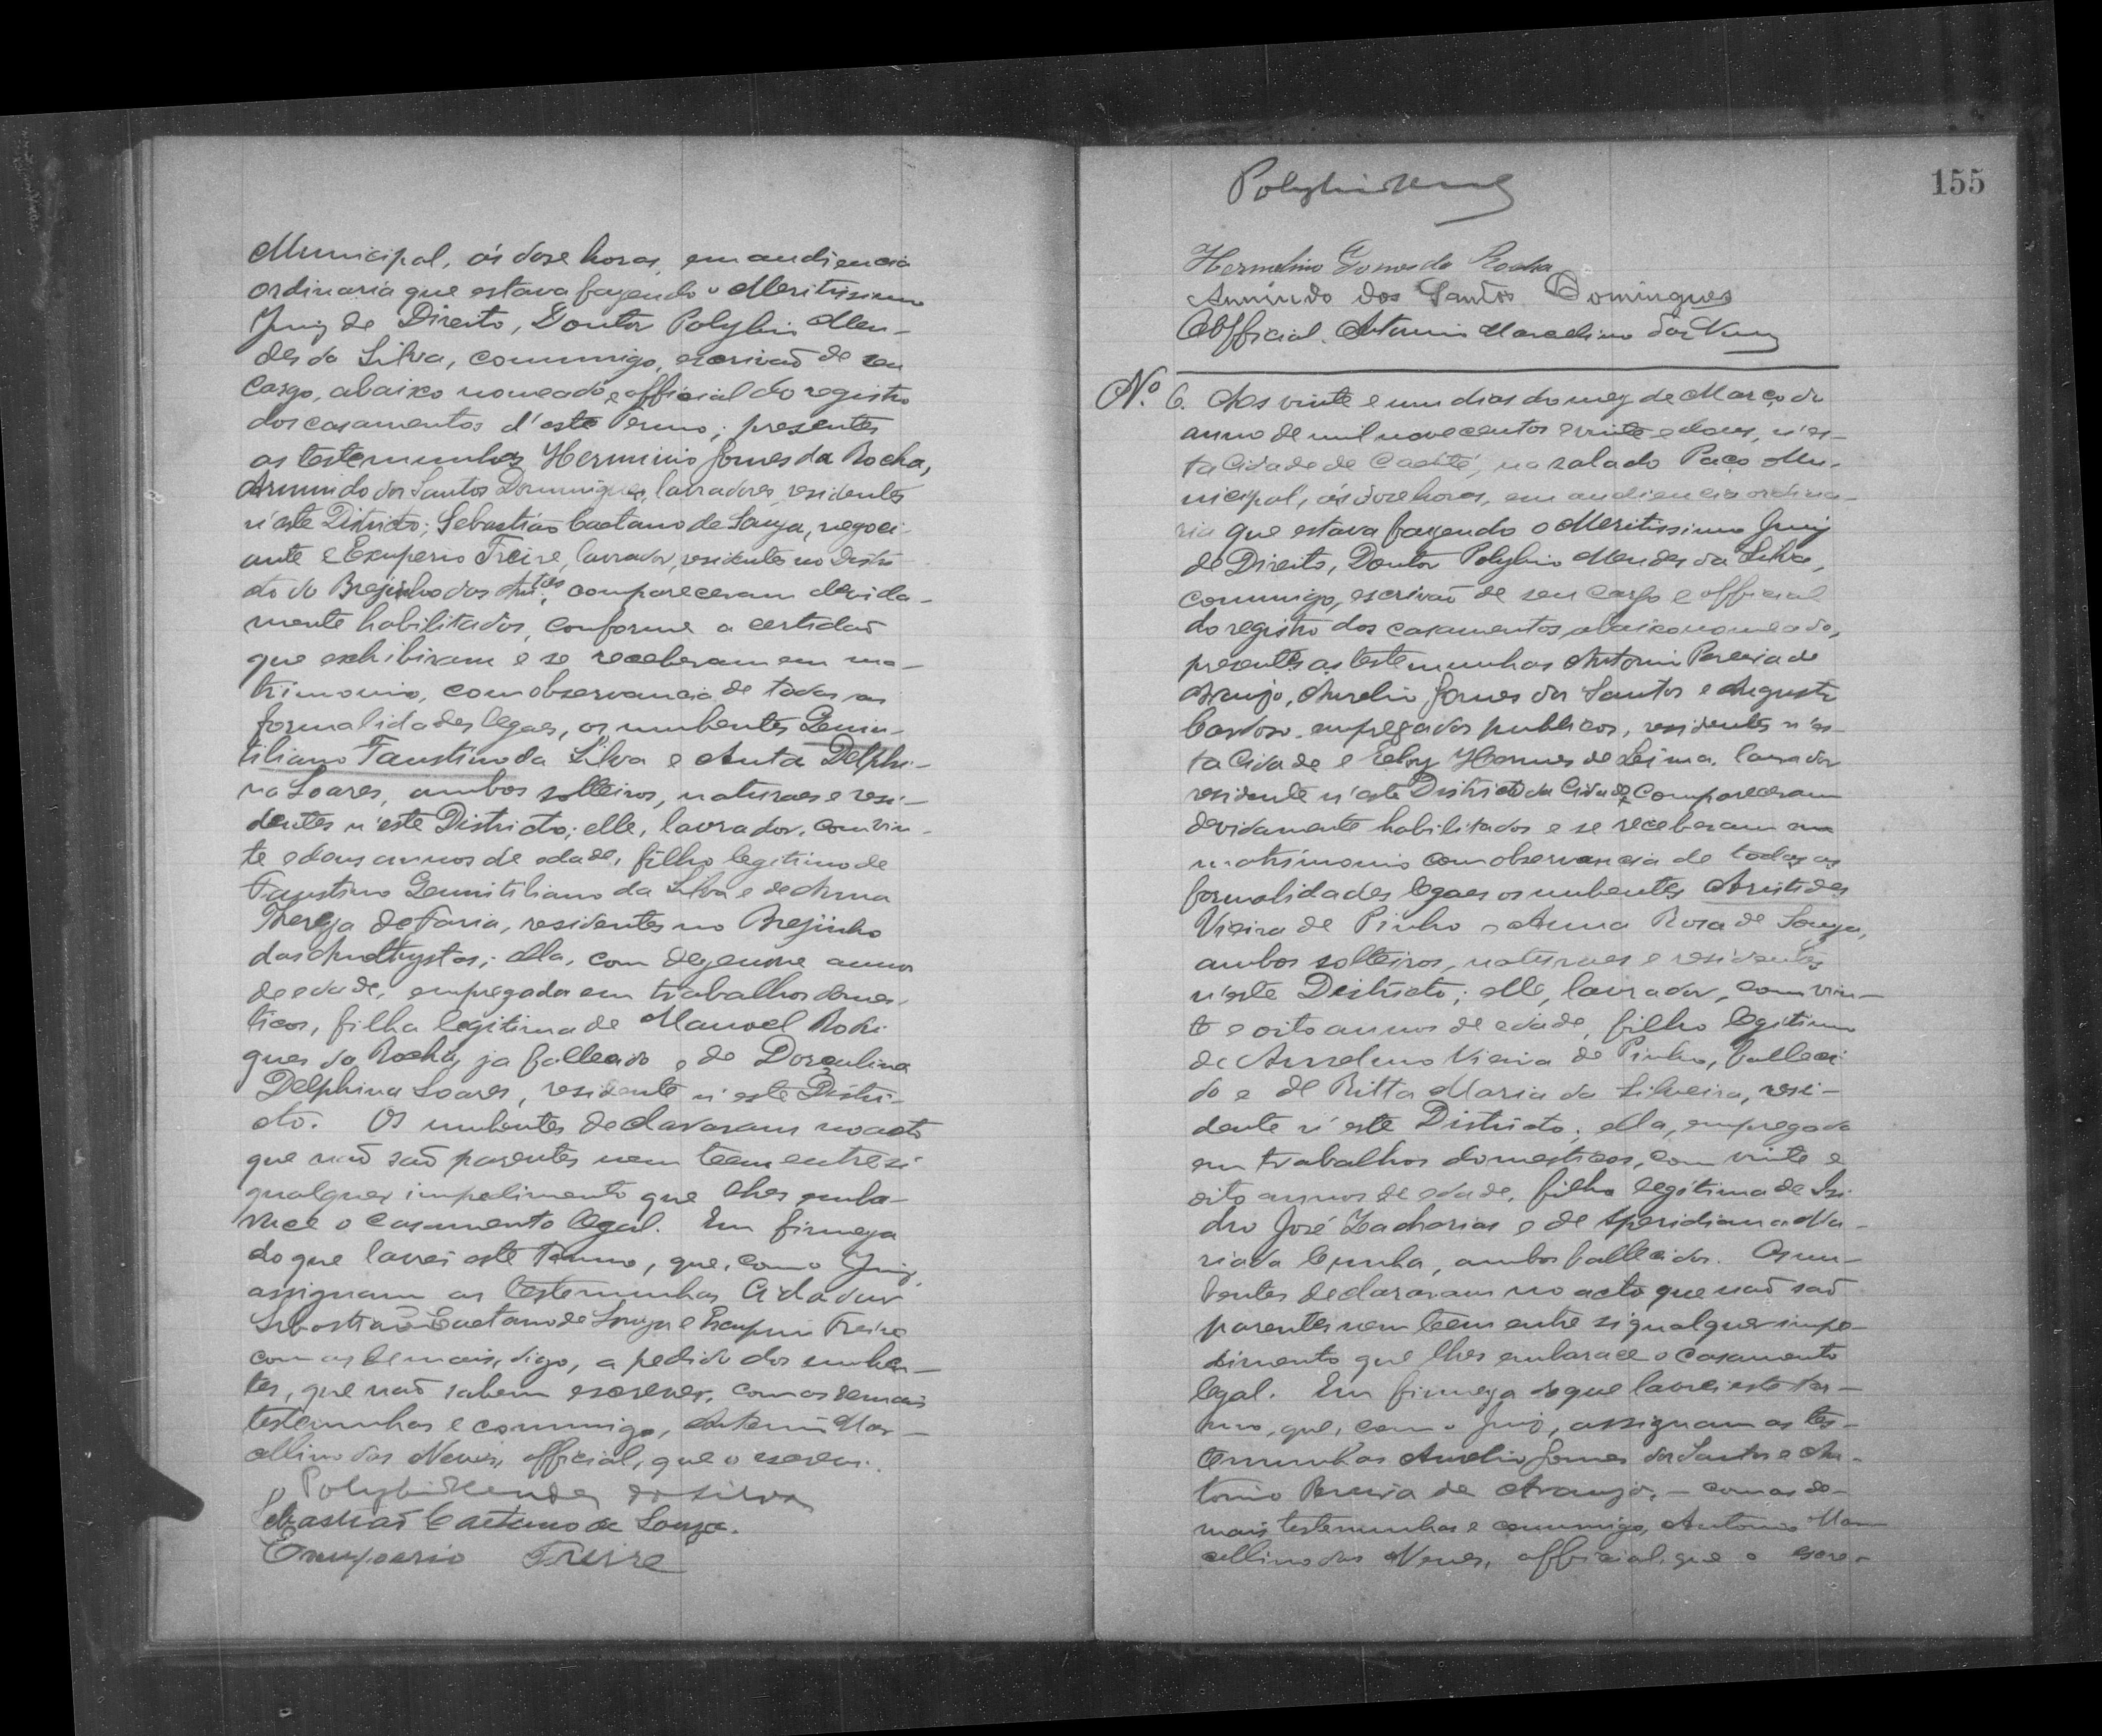 Municipal, ás dose horas, em audiencia
ordinaria que estava fazendo o Meritissimo
Juiz de Direito, Doutor Polybio Men-
des da Silva, commigo, escrivaõ de seu
cargo, abaixo nomeado e official do registro
dos casamentos d'este Termo; presentes
as testemunhas Herminio Gomes da Rocha,
Armindo dos Santos Domingues, lavradores, residentes
n'este Districto; Sebastião Caetano de Souza, negoci-
ante e Exuperio Freire, lavrador, residentes no Distri
cto do Brejinho das Am.tas, compareceram devida-
mente habilitados, conforme a certidaõ
que exhibiram e se receberam em ma-
trimonio, com observancia de todas as
formalidades legaes, os nubentes Genin-
tiliano Faustino da Silva e Anta Delphi-
na Soares, ambos solteiros, naturaes e resi-
dentes n'este Districto; elle, lavrador, com vin-
te e dous annos de edade, filho legitimo de
Faustino Genuitiliano da Silva e de Anna
Thereza de Faria, residentes no Brejinho
das Amethystas; ella, com dezenove annos
de edade, empregada em trabalhos domes-
ticos, filha legitima de Manoel Rodri
gues da Rocha, ja fallecido e de Dorculina
Delphina Soares, residente n'este Distri-
cto. Os nubentes declararam no acto
que naõ saõ parentes nem teem entre si
qualquer impedimento que lhes emba-
race o casamento legal. Em firmeza
do que lavrei este termo, que, com o Juiz,
assignam as testemunhas
Sebastiaõ Caetano de Souza e Exuperio Freire
com as demais, digo, a pedido dos nuben-
tes, que naõ sabem escrever, com as demais
testemunhas e commigo, Antonio Mar-
cellino das Neves, official, que o escrevi.
Polybio Mendes da Silva
Sebastiaõ Caetano de Souza.
Exuperio Freire
155
Hermelino Gomes da Rocha
Armindo dos Santos Domingues
O Official. Antonio Marcelino das Neves
Nº. 6. Aos vinte e um dias do mez de Março do
anno de mil novecentos e vinte e dous, n'es-
ta Cidade de Caetité, na sala do Paço Mu-
nicipal, ás dose horas, em audiencia ordina-
ria que estava fazendo o Meritissimo Juiz
de Direito, Doutor Polybio Mendes da Silva,
commigo, escrivaõ de seu cargo e official
do registro dos casamentos, abaixo nomeado,
presentes as testemunhas Antonio Pereira de
Araujo, Aurelio Gomes dos Santos e Augusto
Cardoso, empregados publicos, residentes n'es-
ta Cidade e Eloy Hermes de Lima, lavrador
residente n'este Districto da Cidade, compareceram
devidamente habilitados e se receberam em
matrimonio com observancia de todas as
formalidades legaes os nubentes Aristides
Vieira de Pinho e Anna Rosa de Souza,
ambos solteiros, naturaes e residentes
n'este Districto; elle, lavrador, com vin-
te e oito annos de edade, filho legitimo
de Anselmo Vieira de Pinho, falleci
do e de Ritta Maria da Silveira, resi-
dente n'este Districto; ella, empregada
em trabalhos domesticos, com vinte e
oito annos de edade, filha legitima de Isi
dro José Zacharias e de Speridiana Ma-
ria da Cunha, ambos fallecidos. Os nu-
bentes declararam no acto que naõ saõ
parentes nem teem entre si qualquer impe-
dimento que lhes embarace o casamento
legal. Em firmeza do que lavrei este ter-
mo, que, com o Juiz, assignam as tes-
temunhas Aurelio Gomes dos Santos e An-
tonio Pereira de Araujo, — com as de-
mais testemunhas e commigo, Antonio Mar
cellino das Neves, official, que o escre-